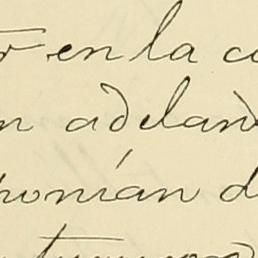 r en la c
n adelan
ponían d